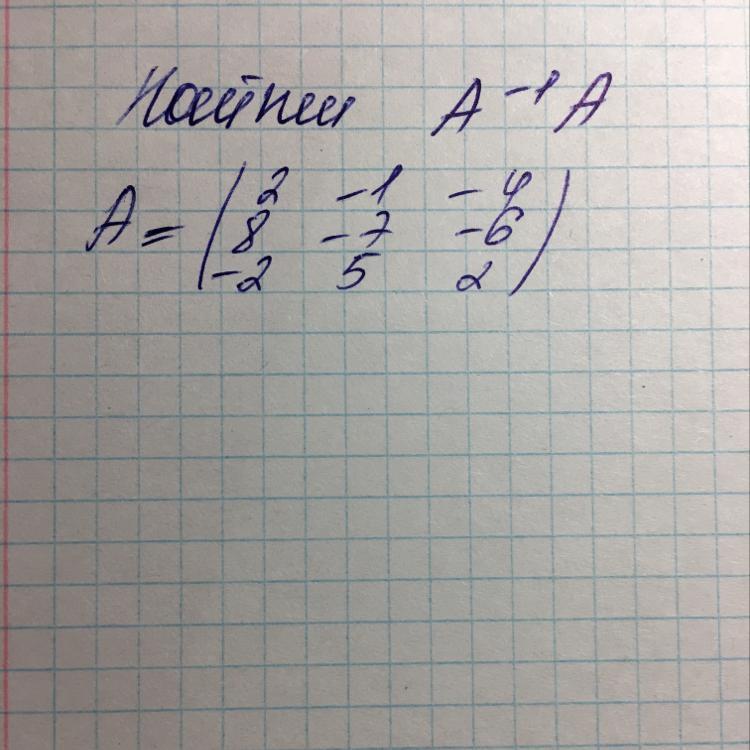 Найти A⁻¹A
A = (2 -1 -4
8 -7 -6
-2 5 2)